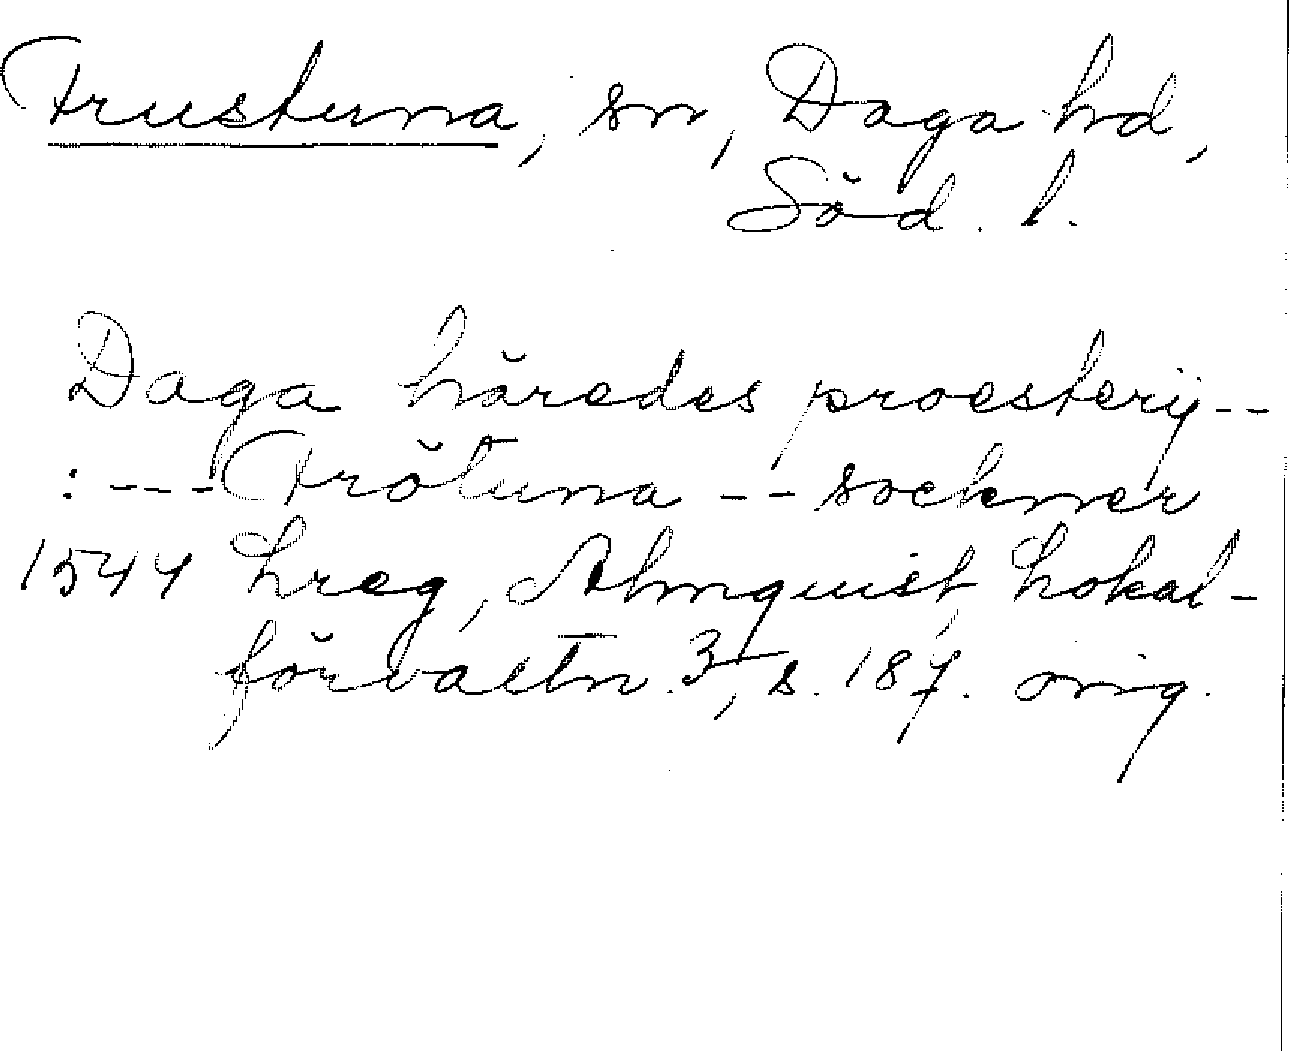 Frustuna, sn, Daga hd,
Söd. l.
Daga häredes proesterij--
: --- Frötuna -- sockner
1544 Lreg, Almquist, Lokal-
förvaltn. 3, s. 187. orig.